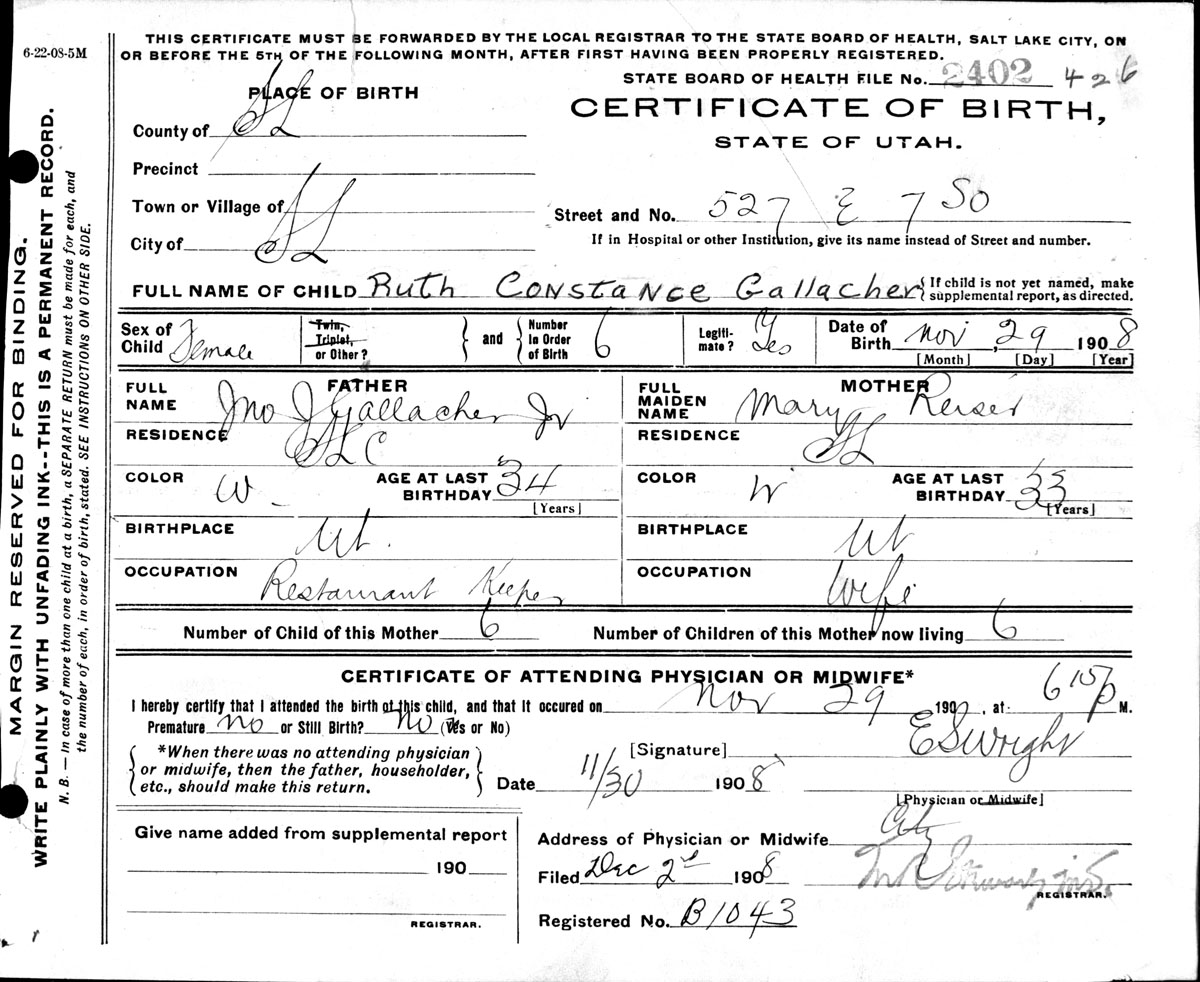 6-22-08-5M
THIS CERTIFICATE MUST BE FORWARDED BY THE LOCAL REGISTRAR TO THE STATE BOARD OF HEALTH, SALT LAKE CITY, ON
OR BEFORE THE 5TH OF THE FOLLOWING MONTH, AFTER FIRST HAVING BEEN PROPERLY REGISTERED.
STATE BOARD OF HEALTH FILE No. 2402 426
PLACE OF BIRTH
CERTIFICATE OF BIRTH,
STATE OF UTAH.
County of SL
Precinct
Town or Village of
City of SL
Street and No. 527 E 7 SO
If in Hospital or other Institution, give its name instead of Street and number.
FULL NAME OF CHILD Ruth Constance Gallacher {If child is not yet named, make
supplemental report, as directed.
Sex of Child Female
Twin, Triplet, or Other?
and
Number In Order of Birth 6
Legiti-mate? Yes
Date of Birth Nov 29 1908
[Month] [Day] [Year]
FATHER
FULL NAME Jno J Gallacher Jr
RESIDENCE SLC
COLOR W
AGE AT LAST BIRTHDAY 34
[Years]
BIRTHPLACE Ut.
OCCUPATION Restaurant Keeper
MOTHER
FULL MAIDEN NAME Mary Reiser
RESIDENCE SL
COLOR W
AGE AT LAST BIRTHDAY 33
[Years]
BIRTHPLACE Ut
OCCUPATION Wife
Number of Child of this Mother 6
Number of Children of this Mother now living 6
CERTIFICATE OF ATTENDING PHYSICIAN OR MIDWIFE*
I hereby certify that I attended the birth of this child, and that it occured on Nov 29 190 , at 6 15 p M.
Premature no or Still Birth? No (Yes or No)
*When there was no attending physician
or midwife, then the father, householder,
etc., should make this return.
[Signature] E S Wright
Date 11/30 1908
[Physician or Midwife]
Give name added from supplemental report
190
REGISTRAR.
Address of Physician or Midwife City
Filed Dec 2d 1908
REGISTRAR.
Registered No. B1043
MARGIN RESERVED FOR BINDING.
WRITE PLAINLY WITH UNFADING INK--THIS IS A PERMANENT RECORD.
N. B. — In case of more than one child at a birth, a SEPARATE RETURN must be made for each, and
the number of each, in order of birth, stated. SEE INSTRUCTIONS ON OTHER SIDE.